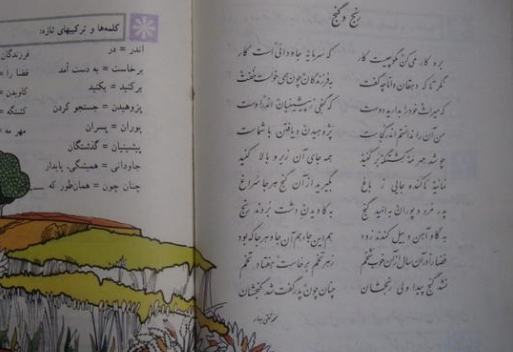 رنج و گنج
برو کار می‌کن مگو چیست کار که سرمایهٔ جاودانی است کار
نگر تا که دهقان دانا چه گفت به فرزندگان چون همی خواست خفت
که میراث خود را بدارید دوست که گنجی ز پیشینیان اندر اوست
من آن را ندانستم اندر کجاست پژوهیدن و یافتن با شماست
چو شد مهر مه کشتگه برکنید همه جای آن زیر و بالا کنید
نمانید ناکنده جایی ز باغ بگیرید از آن گنج هر جا سراغ
پدر مرد و پوران به امید گنج به کاویدن دشت بردند رنج
به گاوآهن و بیل کندند زود هم این جا، هم آن جا و هر جا که بود
قضا را در آن سال از آن خوب شخم ز هر تخم برخاست هفتاد تخم
نشد گنج پیدا ولی رنجشان چنان چون پدر گفت شد گنجشان
کلمه‌ها و ترکیبهای تازه:
اندر = در
برخاست = به دست آمد
برکنید = بکنید
پژوهیدن = جستجو کردن
پوران = پسران
پیشینیان = گذشتگان
جاودانی = همیشگی، پایدار
چنان چون = همان‌طور که
فرزندگان
قضا را =
کاویدن =
کشتگه =
مهر مه =